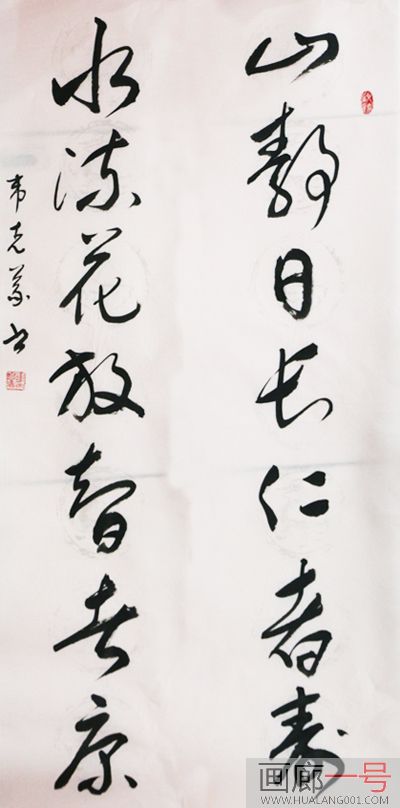 山静日长仁者寿
水流花放智者康
韦克义书
画廊一号
WWW.HUALANG001.COM